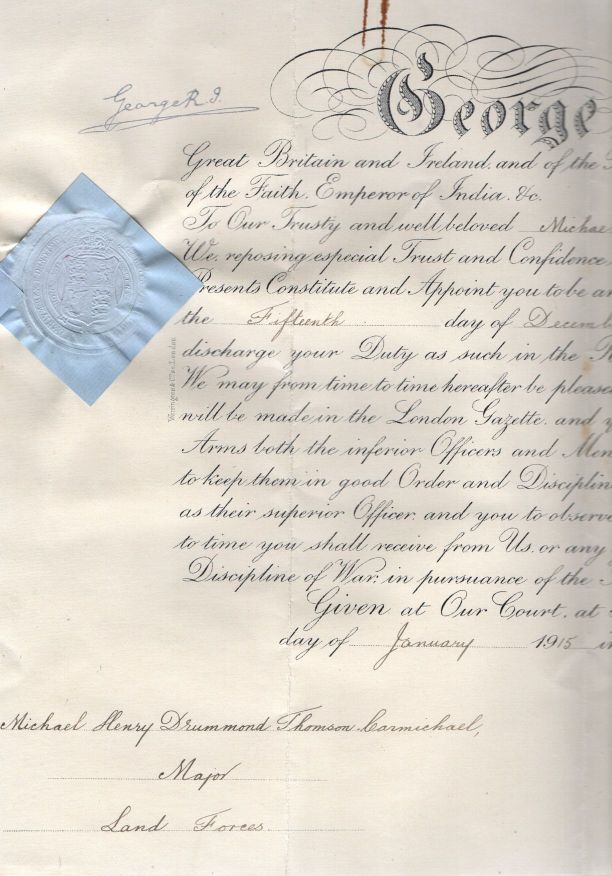 George R.I.
George
Great Britain and Ireland, and of the
of the Faith, Emperor of India, &c.
To Our Trusty and well beloved Michae
We, reposing especial Trust and Confidence,
Presents Constitute and Appoint you to be an
the Fifteenth day of Decemb
discharge your Duty as such in the
We may from time to time hereafter be please
will be made in the London Gazette, and y
Arms both the inferior Officers and Men
to keep them in good Order and Disciplin
as their superior Officer, and you to observe
to time you shall receive from Us, or any
Discipline of War, in pursuance of the
Given at Our Court, at
day of January 1915 in
Michael Henry Drummond Thomson Carmichael,
Major
Land Forces